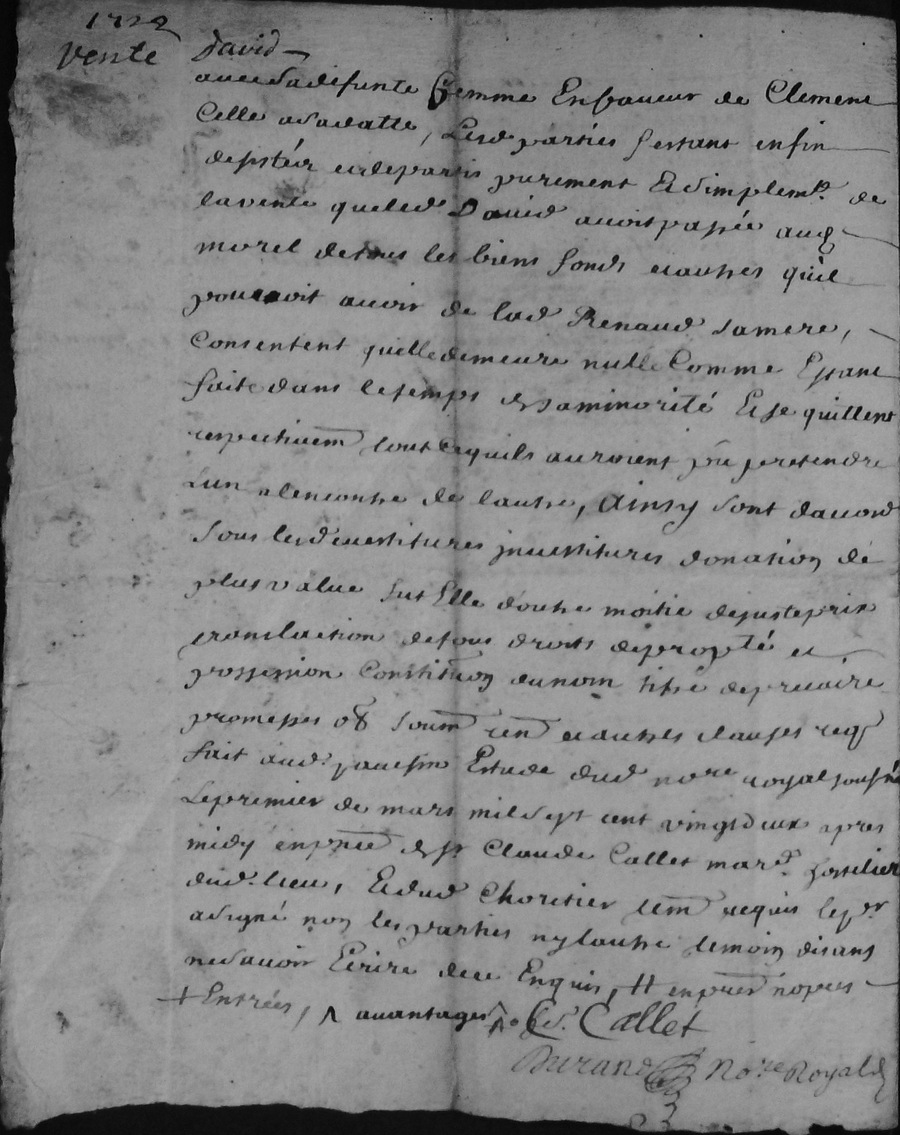 1722
vente
david
avec sa defunte femme En faveur de Clement
Celle a sa datte, Lesd parties s'estant enfin
desister et departis purement Et simplemt. de
la vente que led David avoit passée aud
morel de tous les biens fonds et autres qu'il
pouvoit avoir de lad Renaud sa mere,
Consentent quelle demeure nulle Comme Estant
faite dans le temps de sa minorité Et se quittent
respectivemt tout ce quils auroient pû pretendre
Lun a lencontre de lautre, Ainsy sont daccord
sous lesd vestitures jnvestitures donation de
plus value fut Elle doutre moitie de juste prix
translaction de tous droits de propté et
possession Constitution du nom titre de precaire
promesses obl soum ren et autres clauses req
fait aud. Estude dud nore royal soussné
Le premier de mars mil sept cent vingt deux apres
midy en pnce de sr Claude Callet mard. hostelier
dud. lieu, Et dud tem requis le pr
a signé non les parties ny lautre temoin disans
ne savoir Ecrire de ce Enquis, # en premr nopces
+ Entrées, Λ avantages Cd. Callet
Durand Nore Royal